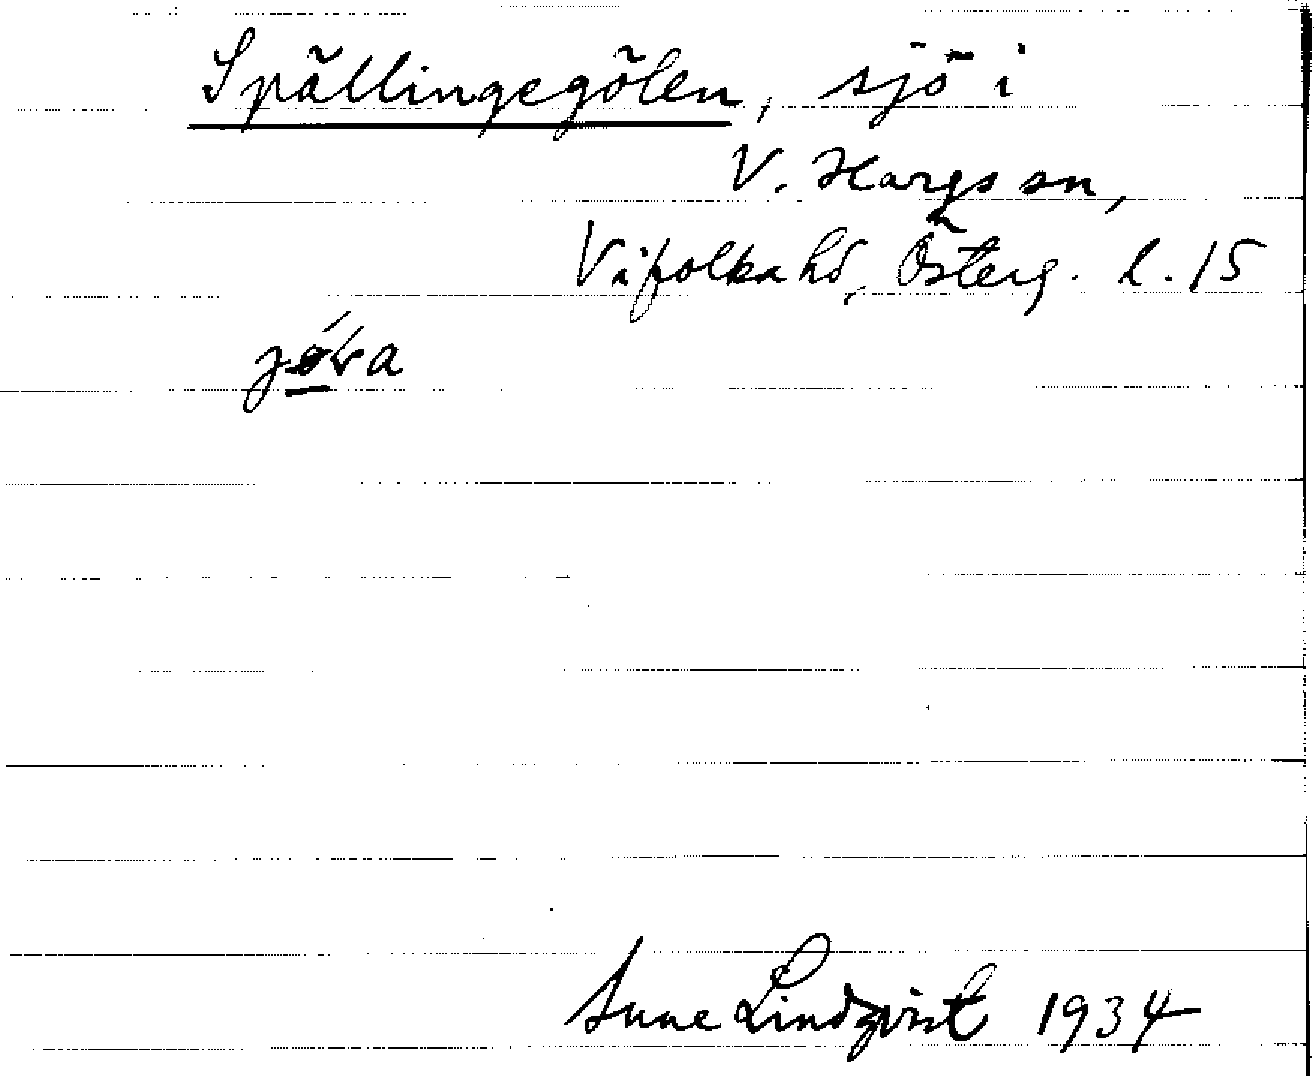 Spällingegölen, sjö i
V. Hargs sn,
Vifolka hd, Österg. l. 15
Sune Lindqvist 1934